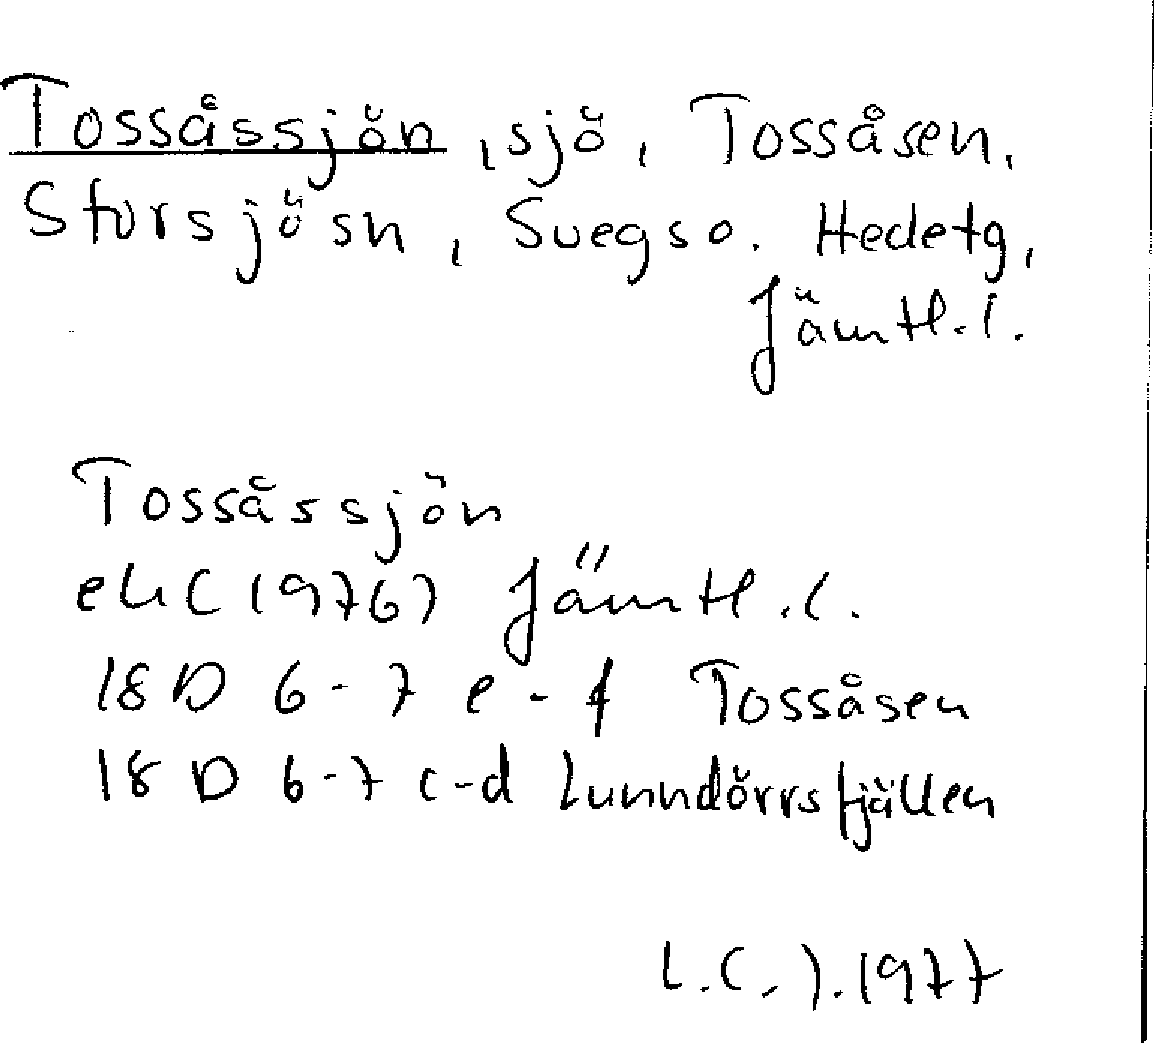 Tossåssjön, sjö, Tossåsen,
Storsjösn, Svegso. Hedetg,
Jämtl.l.
Tossåssjön
ek (1976) Jämtl.l.
18 D 6-7 e-f Tossåsen
18 D 6-7 c-d Lunndörrsfjällen
L.C.J.1977